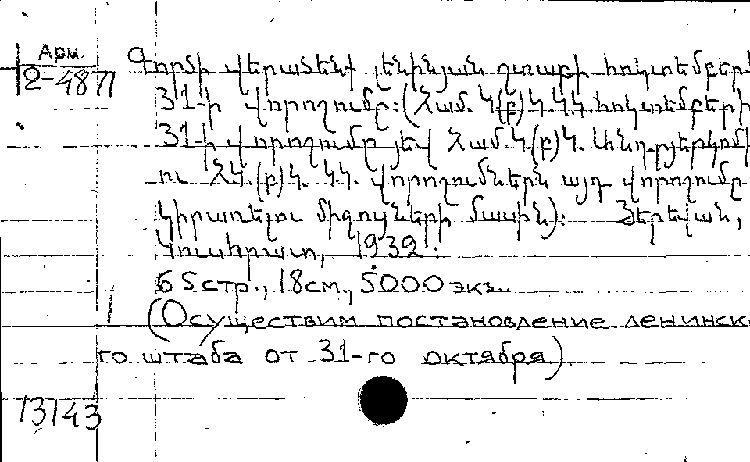 Арм.
2-4871
Գործի վերածենք լենինյան շտաբի հոկտեմբերի
31-ի վորոշումը: (Համ. Կ(բ)Կ ԿԿ հոկտեմբերի
31-ի վորոշումը յեվ Համ.Կ(բ)Կ. Անդրյերկոմի
ու ՀԿ(բ)Կ. ԿԿ. վորոշումներն այդ վորոշումը
կիրառելու միջոցների մասին): Յերեվան,
Կուսհրատ, 1932:
65 стр., 18 см., 5000 экз.
(Осуществим постановление ленинско
го штаба от 31-го октября).
13143